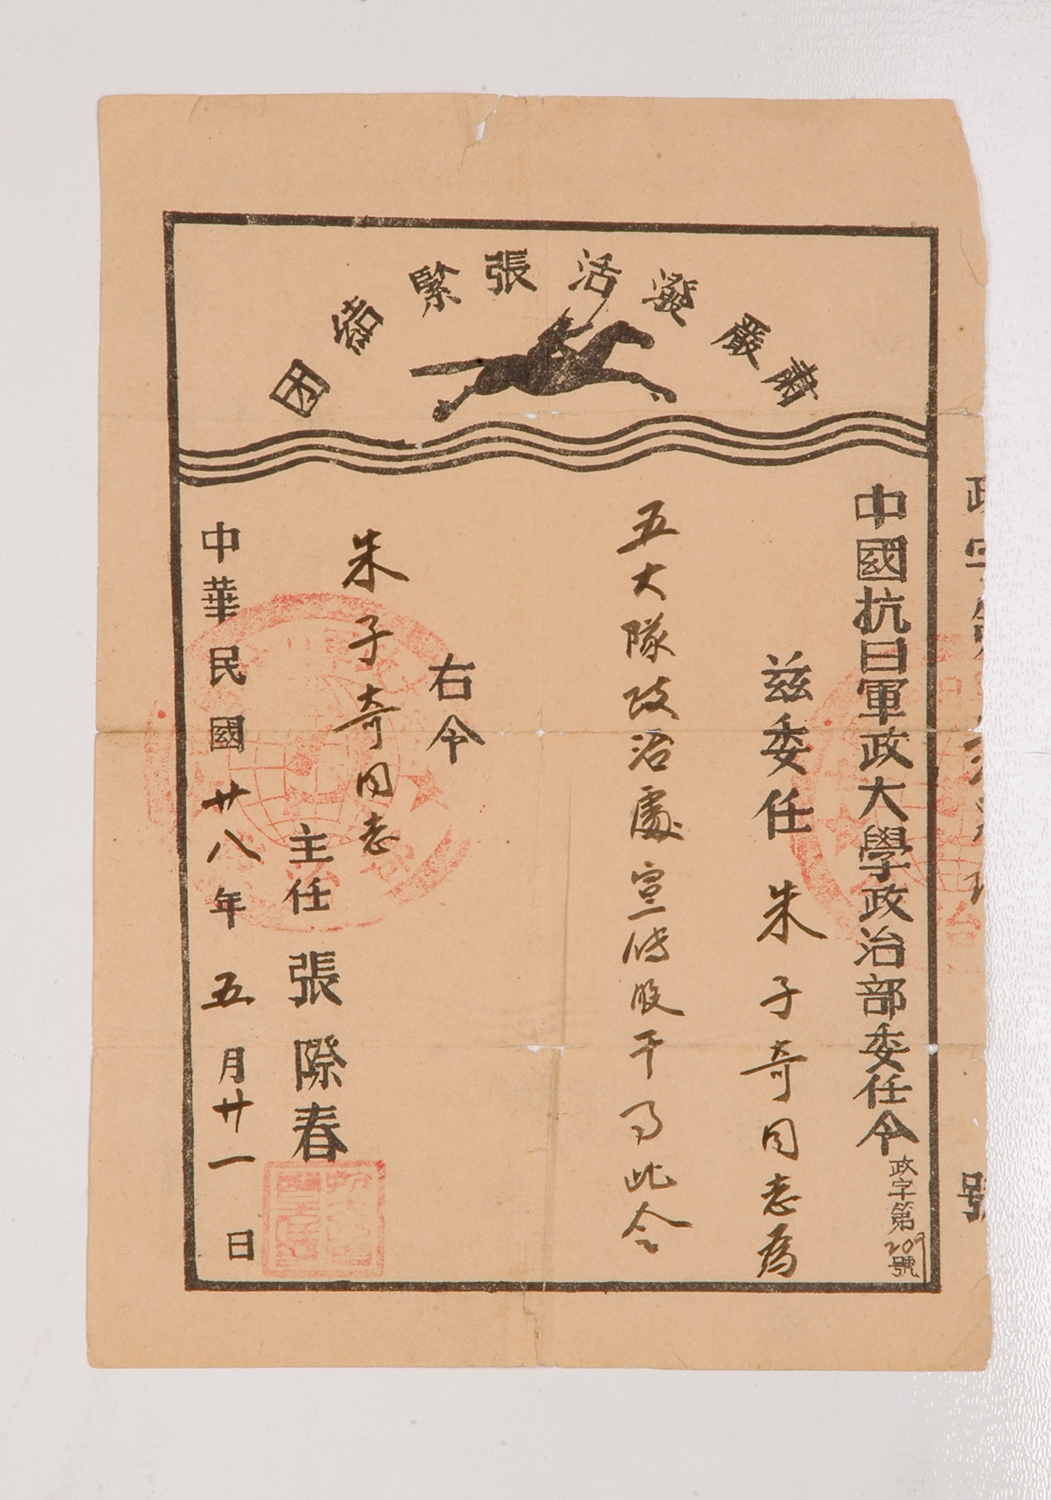 团結緊張活潑嚴肅
號
中國抗日軍政大學政治部委任令 政字第209號
茲委任 朱子奇同志為
五大隊政治處宣传股干事此令
右令
朱子奇同志
主任 張際春
中華民國廿八年五月廿一日